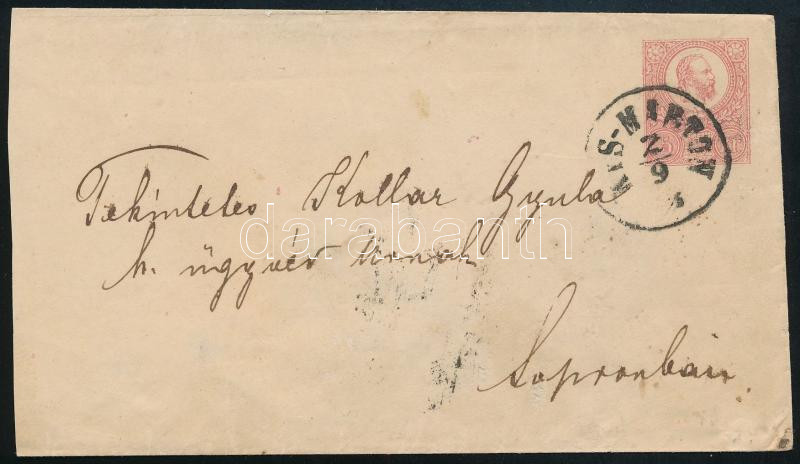 KIS-MARTON
2/9
Tekintetes Kollar Gyula
h. ügyvéd urnak
Sopronban
darabanth